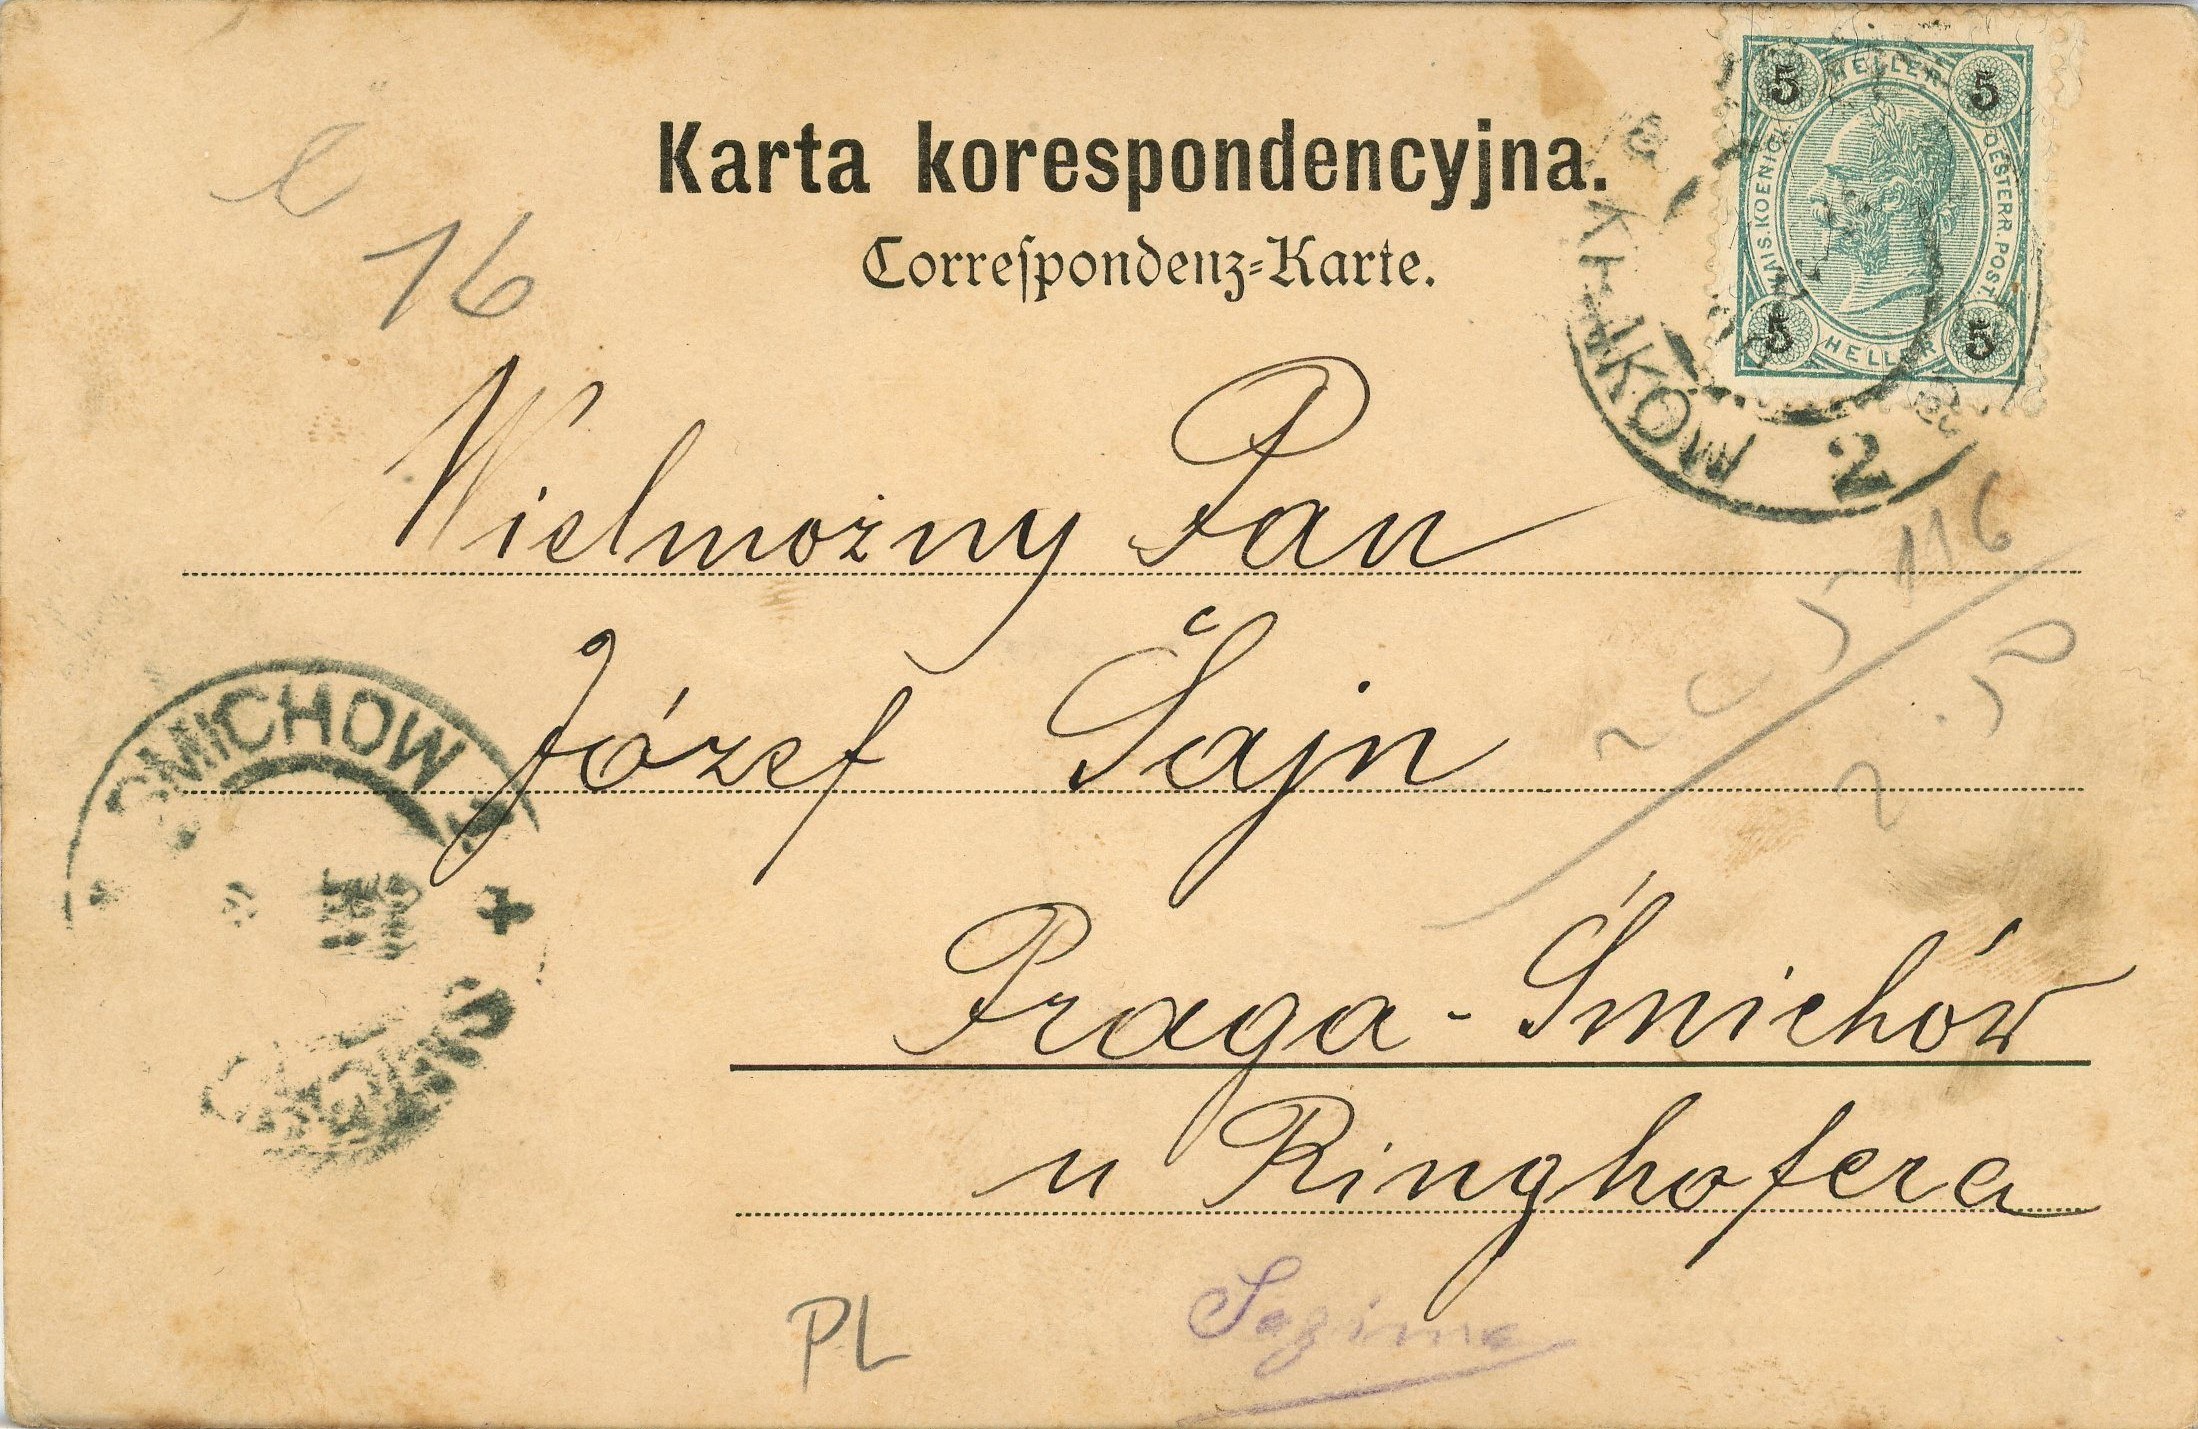 Karta korespondencyjna.
Correspondenz-Karte.
5 HELLER 5
KAIS. KOENIGL. OESTERR. POST.
5 HELLER 5
2
16
Wielmożny Pan
116
Józef Šajn
SMICHOW
Praga-Śmichów
u Ringhofera
PL